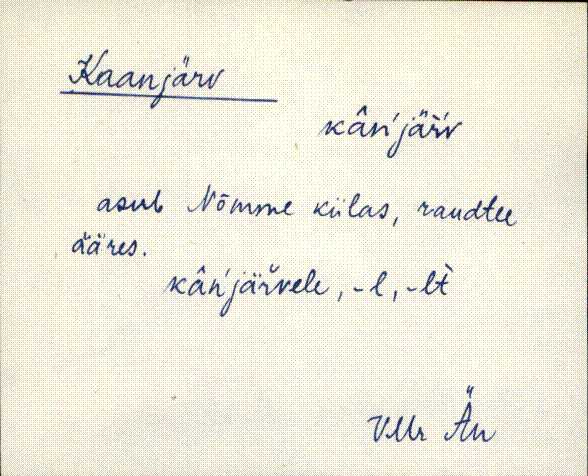 Kaanjärv
kân'jäŕv
asub Nõmme külas, raudtee
ääres.
kân'järvele, -l, -lt
VMr Än